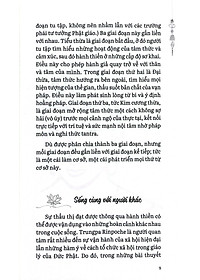 đoạn tu tập, không nên nhầm lẫn với các trường
phái tư tưởng Phật giáo.) Ba giai đoạn này gắn liền
với nhau. Tiểu thừa là giai đoạn bắt đầu, ở đó người
tu tập tìm hiểu những hoạt động của tâm thức và
cảm xúc, nhận ra các hành ở những cấp độ sơ khai.
Điều này cho phép hành giả quay trở về với thân
và tâm của mình. Trong giai đoạn thứ hai là Đại
thừa, tâm thức hướng ra bên ngoài, tìm hiểu mọi
hiện tượng của thế gian, thấu suốt bản chất của vạn
pháp. Điều này làm phát sinh lòng từ bi và ý định
hoằng pháp. Giai đoạn thứ ba, tức Kim cương thừa,
là giai đoạn mở rộng tâm thức một cách không sợ
hãi (vô úy) trước mọi cảnh ngộ của thực tại, kết nối
trực tiếp với trí tuệ và sức mạnh nội tâm nhờ pháp
môn và nghi thức tantra.
Dù được phân chia thành ba giai đoạn, nhưng
mỗi giai đoạn đều gắn liền với giai đoạn kế tiếp; tức
là một cái làm cơ sở, một cái phát triển mọi thứ từ
cơ sở này.
Sống cùng với người khác
Sự thấu thị đạt được thông qua hành thiền có
thể được vận dụng vào những hoàn cảnh khác nhau
trong cuộc sống. Trungpa Rinpoche là người quan
tâm rất nhiều đến sự vận hành của xã hội hiện đại
lẫn những hàm ý về cách tổ chức xã hội trong giáo
lý của Đức Phật. Do đó, trong những bài thuyết
9